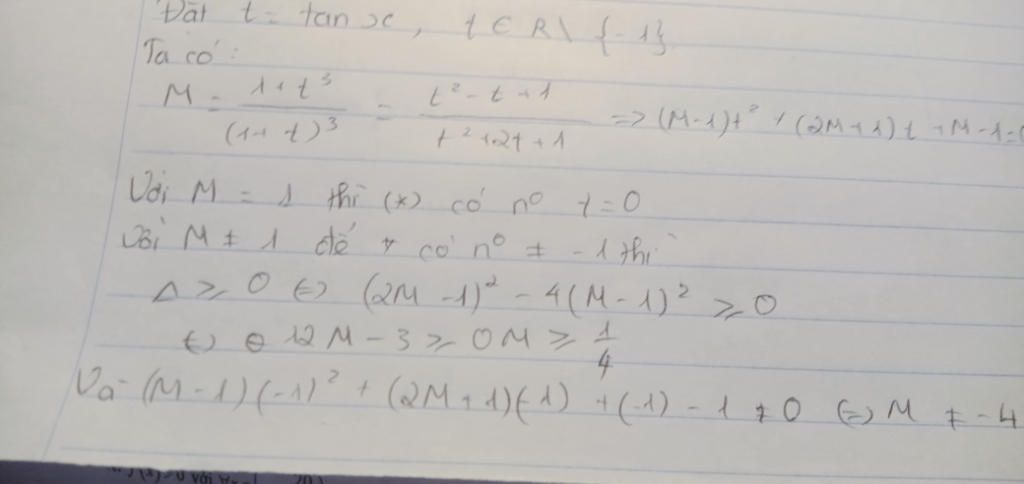 Đặt t = tan x, t ∈ R \ {-1}
Ta có:
M = \frac{1+t^3}{(1+t)^3} = \frac{t^2-t+1}{t^2+2t+1} => (M-1)t^2 + (2M+1)t + M-1=0
Với M = 1 thì (*) có n^o t=0
Với M ≠ 1 để * có n^o ≠ -1 thì
Δ ≥ 0 <=> (2M-1)^2 - 4(M-1)^2 ≥ 0
<=> 12M-3 ≥ 0 M ≥ \frac{1}{4}
Và (M-1)(-1)^2 + (2M+1)(-1) + (-1) - 1 ≠ 0 <=> M ≠ -4